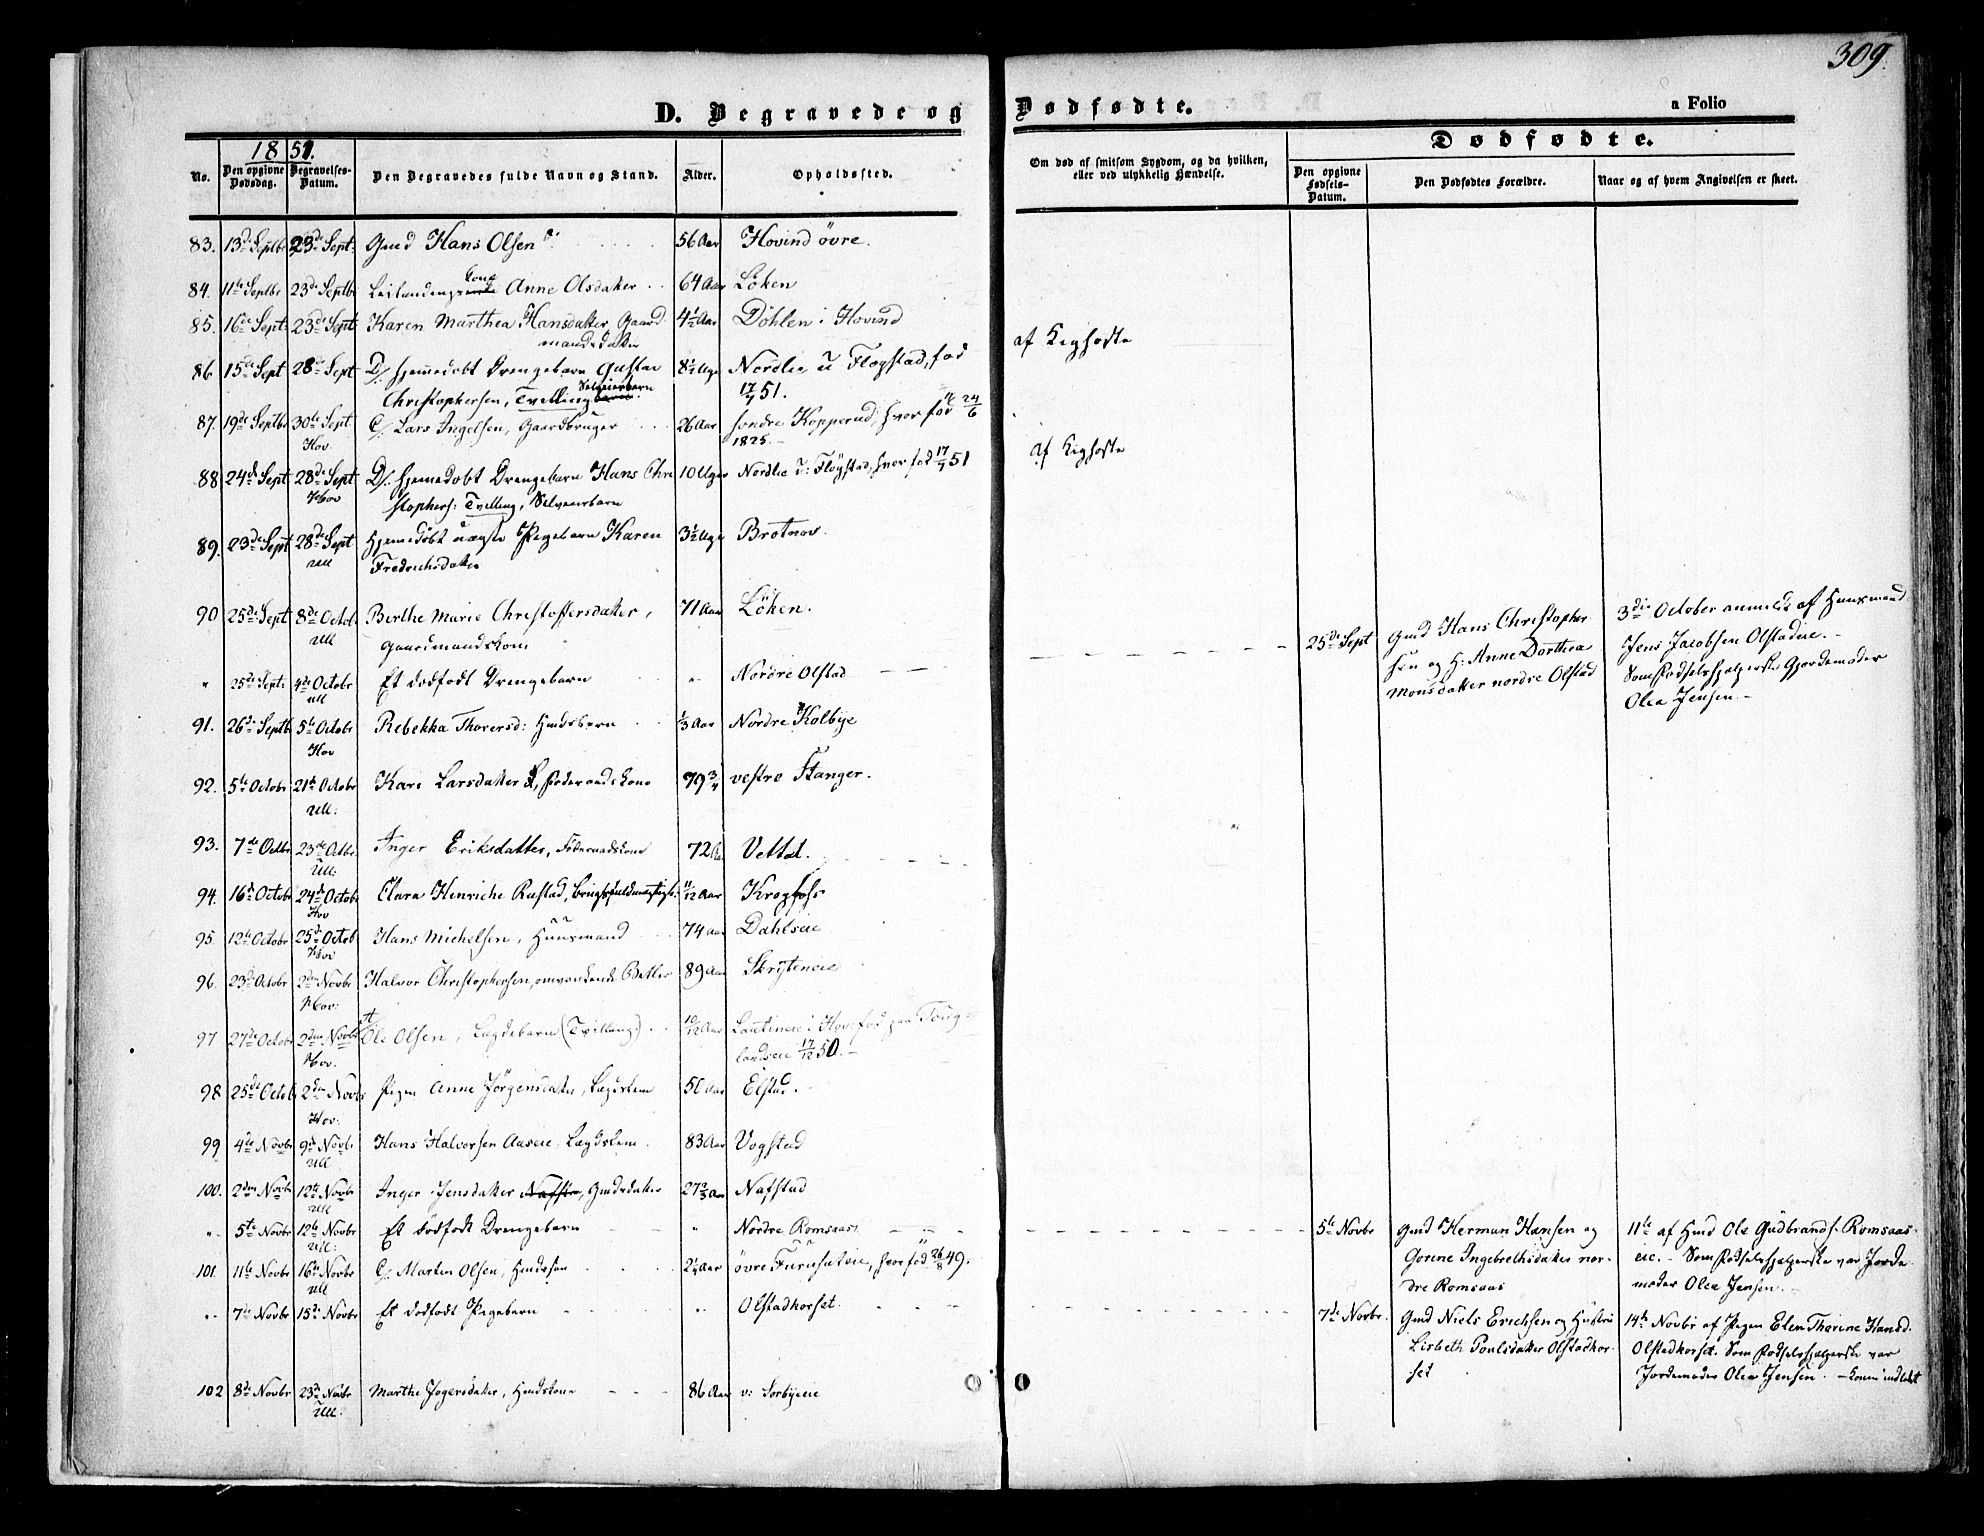 309.
D. Begravede og Dødfødte.
a Folio
1851.
Dødfødte.
No.
Den opgivne Dødsdag.
Begravelses-Datum.
Den Begravedes fulde Navn og Stand.
Alder.
Opholdssted.
Om død af smitsom Sygdom, og da hvilken, eller ved ulykkelig Hændelse.
Den opgivne Fødsels-Datum.
Den Dødfødtes Forældre.
Naar og af hvem Angivelsen er skeet.
83. 13de Septbr 23de Sept: Gmd Hans Olsen 56 Aar Hovind övre.
84. 11te Septbr 23de Septbr Leilendings Kone Anne Olsdatter 64 Aar Löken
85. 16de Sept: 23de Sept Karen Marthea Hansdatter, Gaard- 4½ Aar Döhlen i Hovind
mandsdatter
af Kighoste
86 15de Sept 28de Sept D/: hjemmedöbt Drengebarn Gustav 8½ Uge Nordlie u Flogstad, fød
Christophersen, Tvilling Selveierbarn 17/7 51.
87. 19de Septbr 30te Sept C/: Lars Ingelsen, Gaardbruger 26 Aar søndre Kopperud, hvor fød 24/6
Hov 1825.
88 24de Sept 28de Sept D/: hjemmedøbt Drengebarn Hans Chri 10 Uger Nordlie u: Flögstad, hvor fød 17/7 51
Hov stophers: Tvilling, Selveierbarn
af Kighoste
89. 23de Sept 28de Sept Hjemmedöbt uægte Pigebarn Karen 3½ Uge Brotnov.
Ull Fredrichsdatter
90 25de Sept 8de Octob Berthe Marie Christoffersdatter, 71 Aar Löken.
Ull Gaardmandskone
" 25de Sept: 4de Octobr Et dødfødt Drengebarn " Nordre Olstad
Ull
25de Sept
Gmd Hans Christopher
sen og H: Anne Dorthea
Monsdatter nordre Olstad
3die October anmeldt af Huusmand
Jens Jacobsen Olstadeie.
Som Fødselshjelperske Gjordemoder
Olea Jensen.
91. 26de Septb 5te Octobr Rebekka Thorersd: Gmdsbarn 1/3 Aar Nordre Kolbye
Hov
92. 5te Octobr 21te Octobr Kari Larsdatter, Føderaadskone 79 3/4 vestre Stanger.
Ull:
93. 7de Octbr 23de Octbr. Inger Eriksdatter, Föderaadskone 72 Aar Vettal.
Ull:
94. 16de Octobr 24de Octobr Clara Henriche Rustad, 11/12 Aar Krogfoss
Hov
95. 12te Octobr 25de Octob Hans Michelsen, Huusmand 74 Aar Dahlseie
Hov
96. 23de Octobr 2den Novbr Halvor Christophersen, omvankende Betler 89 Aar Skryteneie
Hov:
97 27de Octobr 2den Novbr Ole Olsen, Lægdebarn (Tvilling) 10/12 Aar i Hov fød paa Toug-
Hov. landseie 17/12 50.
98 25de Octob 2den Novbr Pigen Anne Jörgensdatter, Lægdslem 50 Aar Elstad.
Hov:
99 4de Novbr 9de Novbr Hans Halvorsen Aaseie, Lægdslem. 83 Aar Vogstad
Ull
100. 2den Novbr 12te Novbr Inger Jensdatter, Gmdsdatter 27 2/3 Aar Nafstad
Ull
" 5te Novbr 12te Novbr Et dödfödt Drengebarn " Nordre Romsaas
Ull:
5te Novbr
Gmd Herman Hansen og
Gorine Ingebrethsdatter nor-
dre Romsaas
11te af Hmd Ole Gudbrands: Romsaas-
eie. Som Fødselshjelperske var Jorde
moder Olea Jensen.
101. 11te Novbr 16de Novbr C/: Martin Olsen, Hmdssøn 2¼ Aar övre Furuseteie, hvor född 26/8 49.
Ull
" 7de Novbr 15de Novbr Et dødfødt Pigebarn " Olstadkorset.
7de Novbr.
Gmd Niels Erichsen og Hustru
Lisbeth Poulsdatter Olstadkor-
set
14de Novbr af Pigen Elen Thorine Hansd.
Olstadkorset. Som Fødselshjelperske var
Jordemoder Olea Jensen.
102 8de Novbr 23de Novbr Marthe Jogersdatter, Hmdskone 86 Aar v: Sorbyeie
Ull: